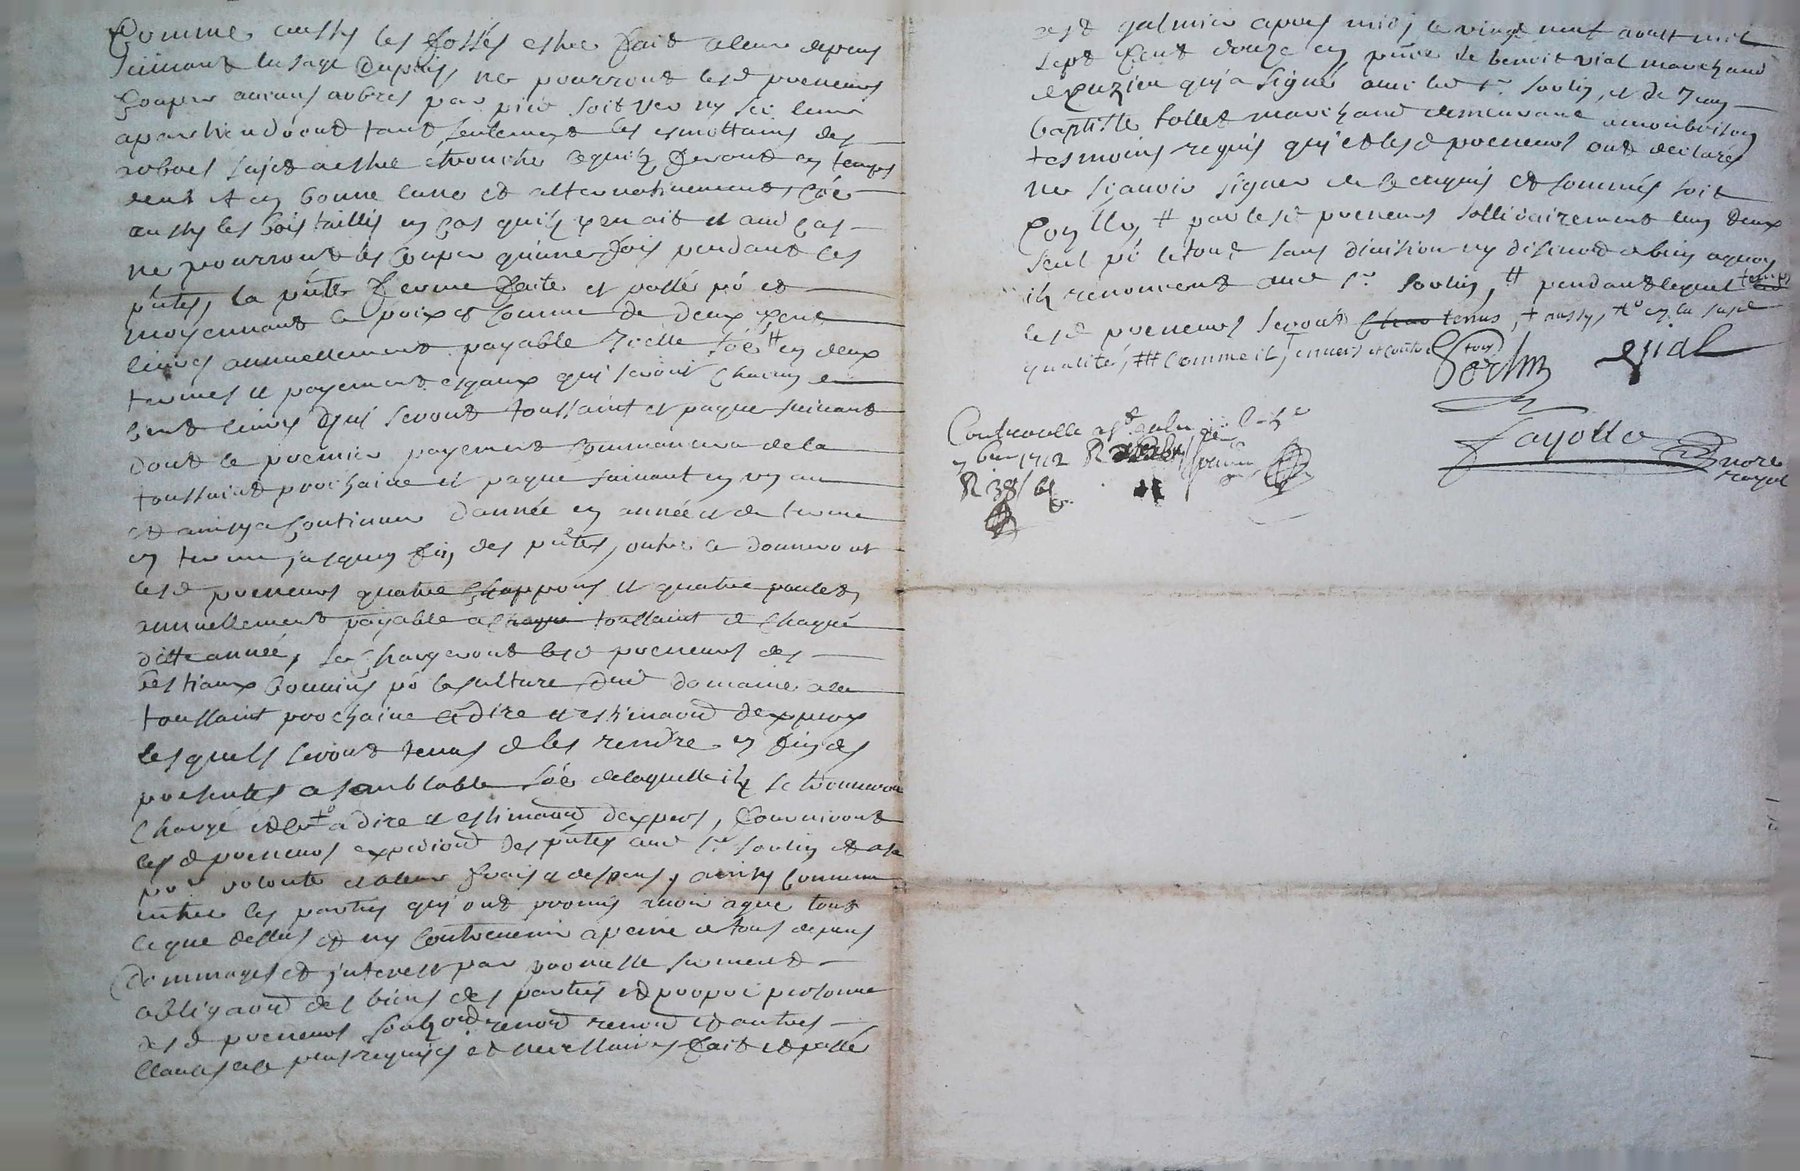 Comme aussy les fossés estre fait a leur depens
suivant lusage du pais, ne pourront lesd preneurs
couper aucuns arbres par pied soit verd ny sec leur
apartiendront tant seulement les esmottains des
arbres sujet a estre ébranché ce qu'ilz feront en temps
deub et en bonne lune et alternativement, coe
aussy les bois taillis en cas quil y en ait et aud cas
ne pourront les couper qu'une fois pendant les
pntes, la pnte ferme faite et passé po et
moyennant le prix et somme de deux cent
livres annuellement payable # en deux
termes et payement esgaux qui seront chacun de
cent livres qui seront toussaint et paque suivant
dont le premier payement commencera de la
toussaint prochaine et paque suivant en un an
et ainsy a continuer dannée en année et de terme
en terme jusques fin des pntes, outre ce donneront
lesd preneurs quatre chappons et quatre poulets
annuellement payable a chaque toussaint de chaque
ditte année, se chargeront lesd preneurs des
bestiaux bouvins po la culture dud domaine a la
toussaint prochaine a dire et estimaon dexperx
lesquels seront tenus de les rendre en fin des
presentes a semblable soe de laquelle ilz se trouveront
chargé a dire et estimaon dexpers, fourniront
lesd preneurs expedion des pntes aud sr et a sa
pre volonté et a leur frais et despens, ainsy convenu
entre les parties qui ont promis avoir agree tout
ce que dessus et ny contrevenir a peine de tous depens
dommages et jnterest par promesse serment
obligaon des biens des parties et propre personne
desd preneurs renon renon et autres
clauses de plus requises et necessaires fait et passé
a st galmier apres midy le vingt neuf aoust mil
sept cent douze en pnce de benoit vial marchand
qui a signé avec led sr et de Jean
baptiste follet marchand demeurant a montbrison
tesmoins requis qui et lesd preneurs ont declarés
ne sçavoir signer de ce enquis et sommés soit
# par lesd preneurs sollidairement lun deux
seul po le tout sans division ny discution a bien a quoy
ilz renoncent aud sr # pendant lequel temps
lesd preneurs seront tenus, + aussy, en la susd
qualité, ## comme il,
vial
fayolle
nore
royal
Controllé a st galmier le
7bre 1712 R
R 38 s